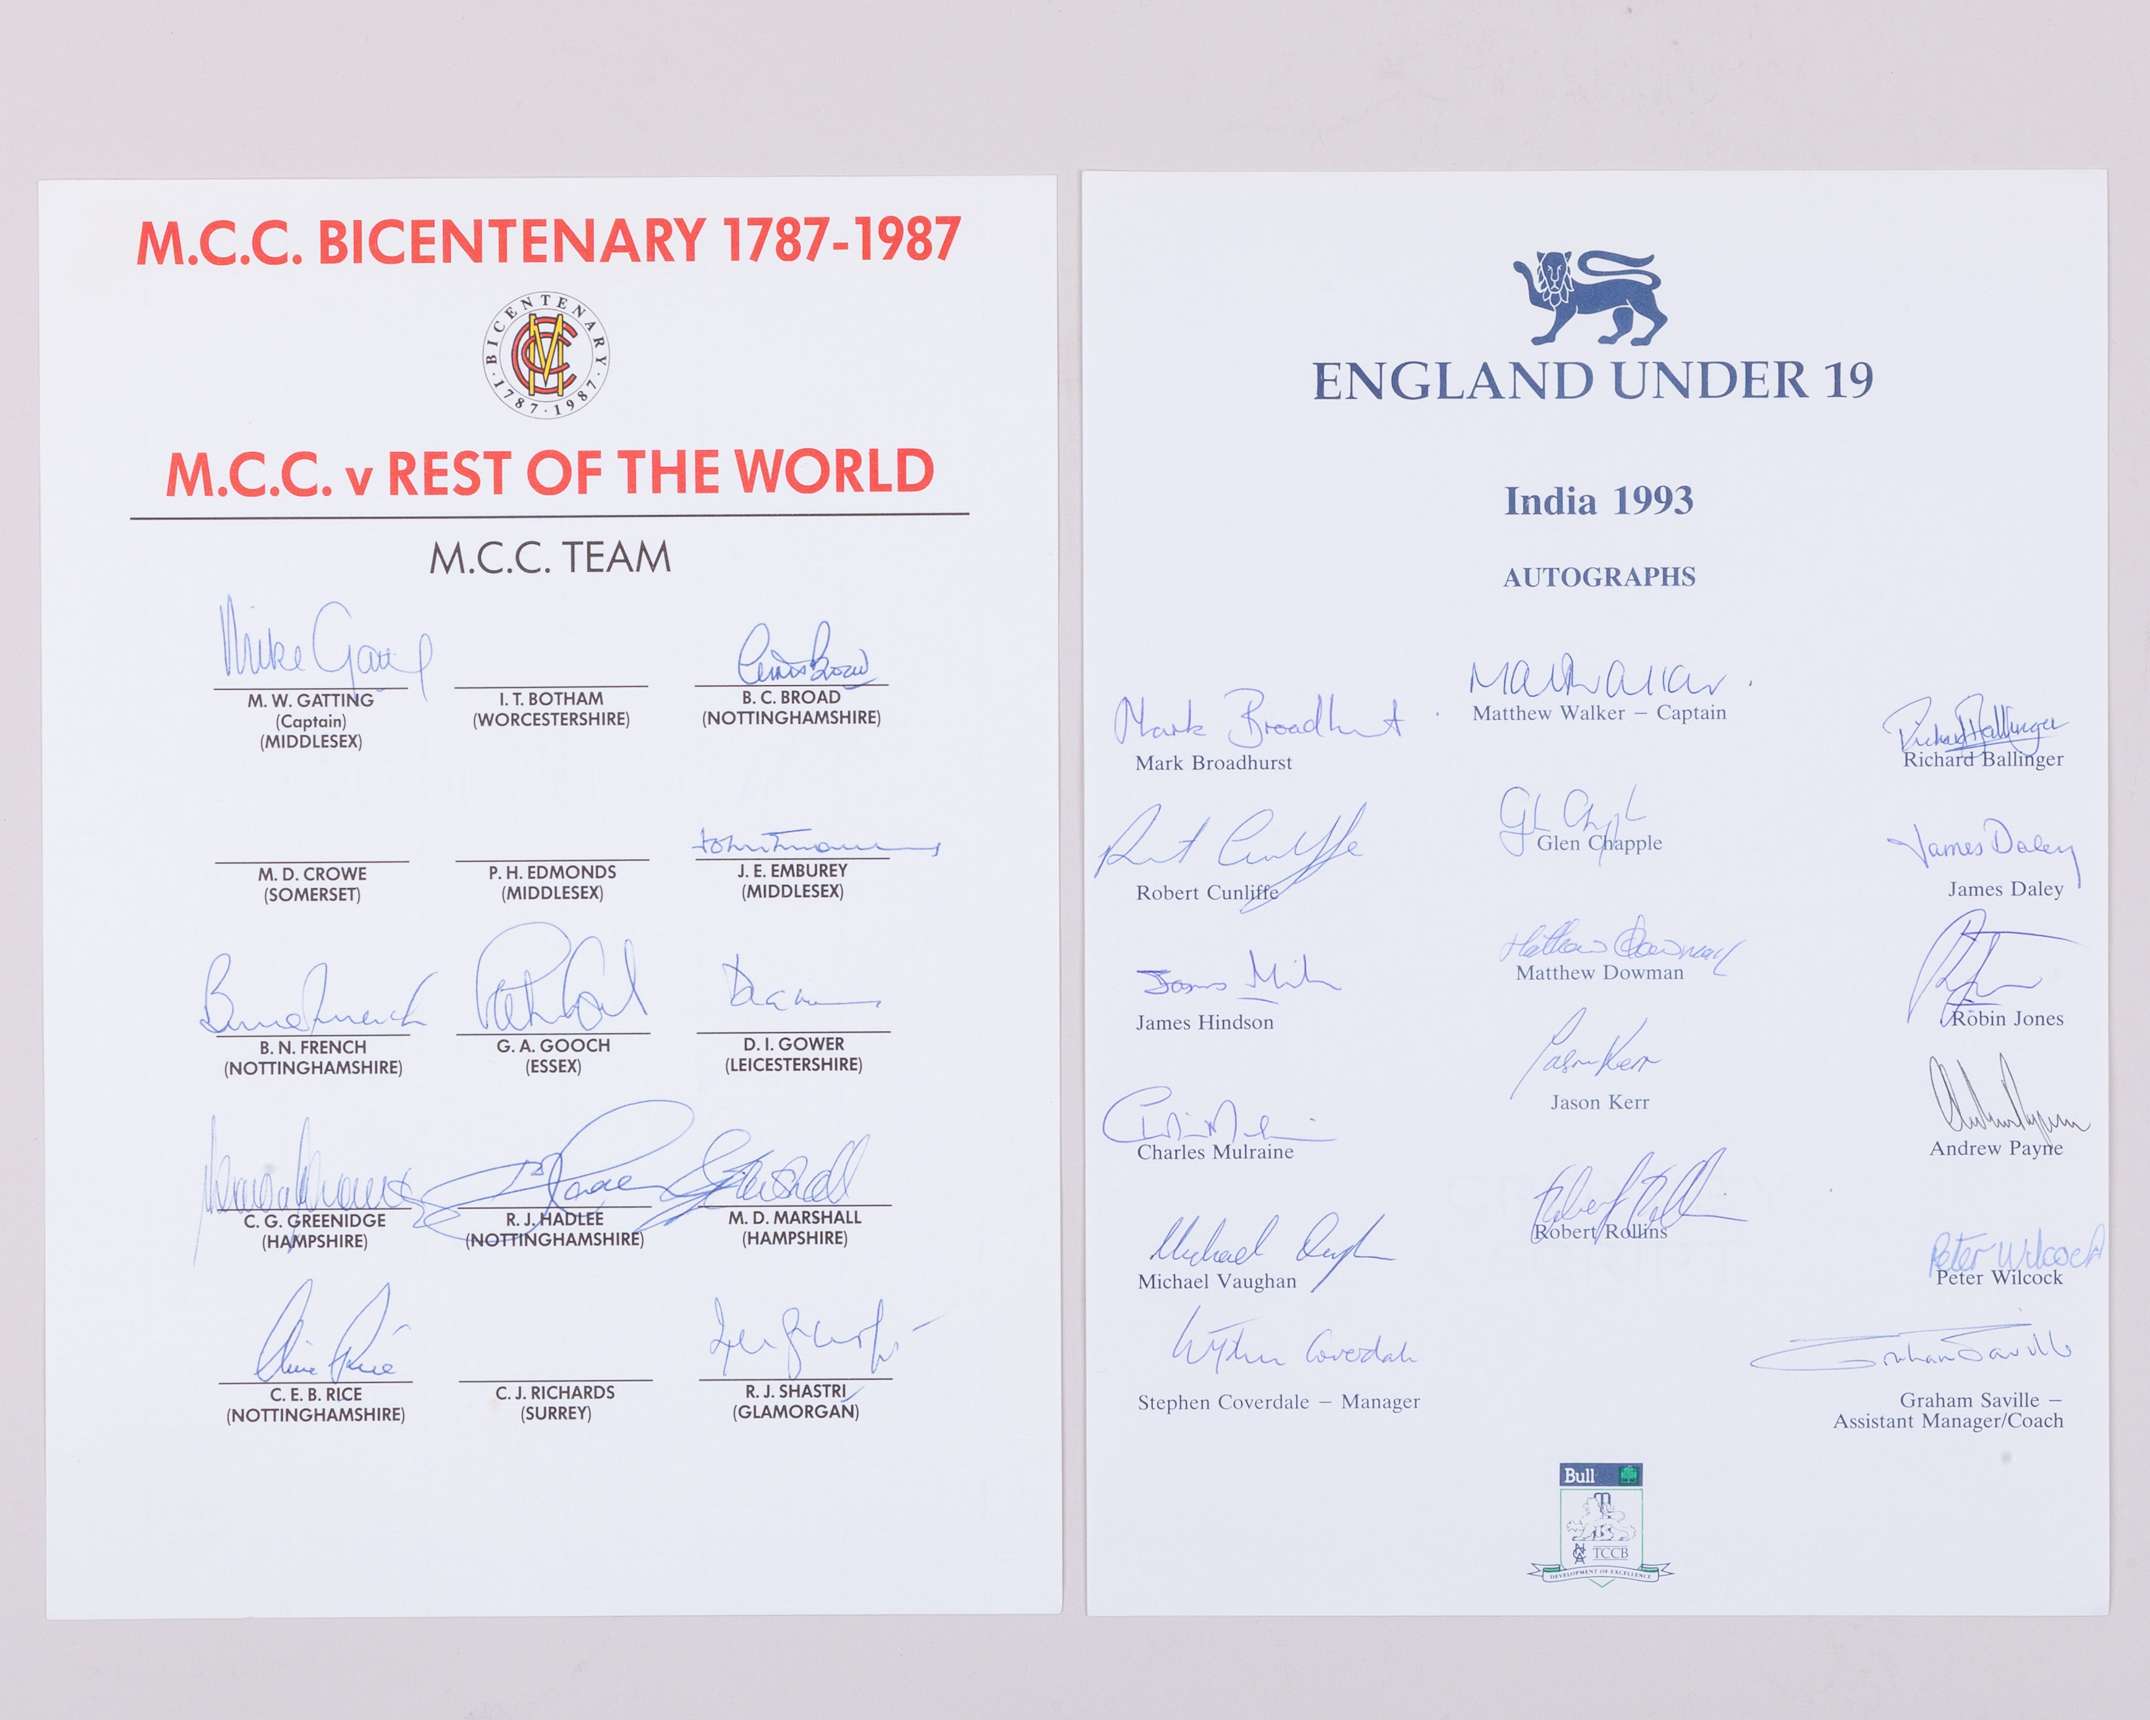 M.C.C. BICENTENARY 1787-1987
BICENTENARY · 1787 · 1987 ·
MCC
M.C.C. v REST OF THE WORLD
M.C.C. TEAM
Mike Gatting
Chris Broad
M. W. GATTING
(Captain)
(MIDDLESEX)
I. T. BOTHAM
(WORCESTERSHIRE)
B. C. BROAD
(NOTTINGHAMSHIRE)
M. D. CROWE
(SOMERSET)
P. H. EDMONDS
(MIDDLESEX)
J. E. EMBUREY
(MIDDLESEX)
B. N. FRENCH
(NOTTINGHAMSHIRE)
G. A. GOOCH
(ESSEX)
D. I. GOWER
(LEICESTERSHIRE)
C. G. GREENIDGE
(HAMPSHIRE)
R. J. HADLEE
(NOTTINGHAMSHIRE)
M. D. MARSHALL
(HAMPSHIRE)
Clive Rice
C. E. B. RICE
(NOTTINGHAMSHIRE)
C. J. RICHARDS
(SURREY)
R. J. SHASTRI
(GLAMORGAN)
ENGLAND UNDER 19
India 1993
AUTOGRAPHS
Matthew Walker – Captain
Mark Broadhurst
Mark Broadhurst
Richard Ballinger
Richard Ballinger
Glen Chapple
Robert Cunliffe
James Daley
James Daley
Matthew Dowman
Matthew Dowman
James Hindson
Robin Jones
Jason Kerr
Jason Kerr
Charles Mulraine
Andrew Payne
Robert Rollins
Michael Vaughan
Peter Wilcock
Peter Wilcock
Stephen Coverdale – Manager
Graham Saville
Graham Saville –
Assistant Manager/Coach
Bull
NCA TCCB
DEVELOPMENT OF EXCELLENCE